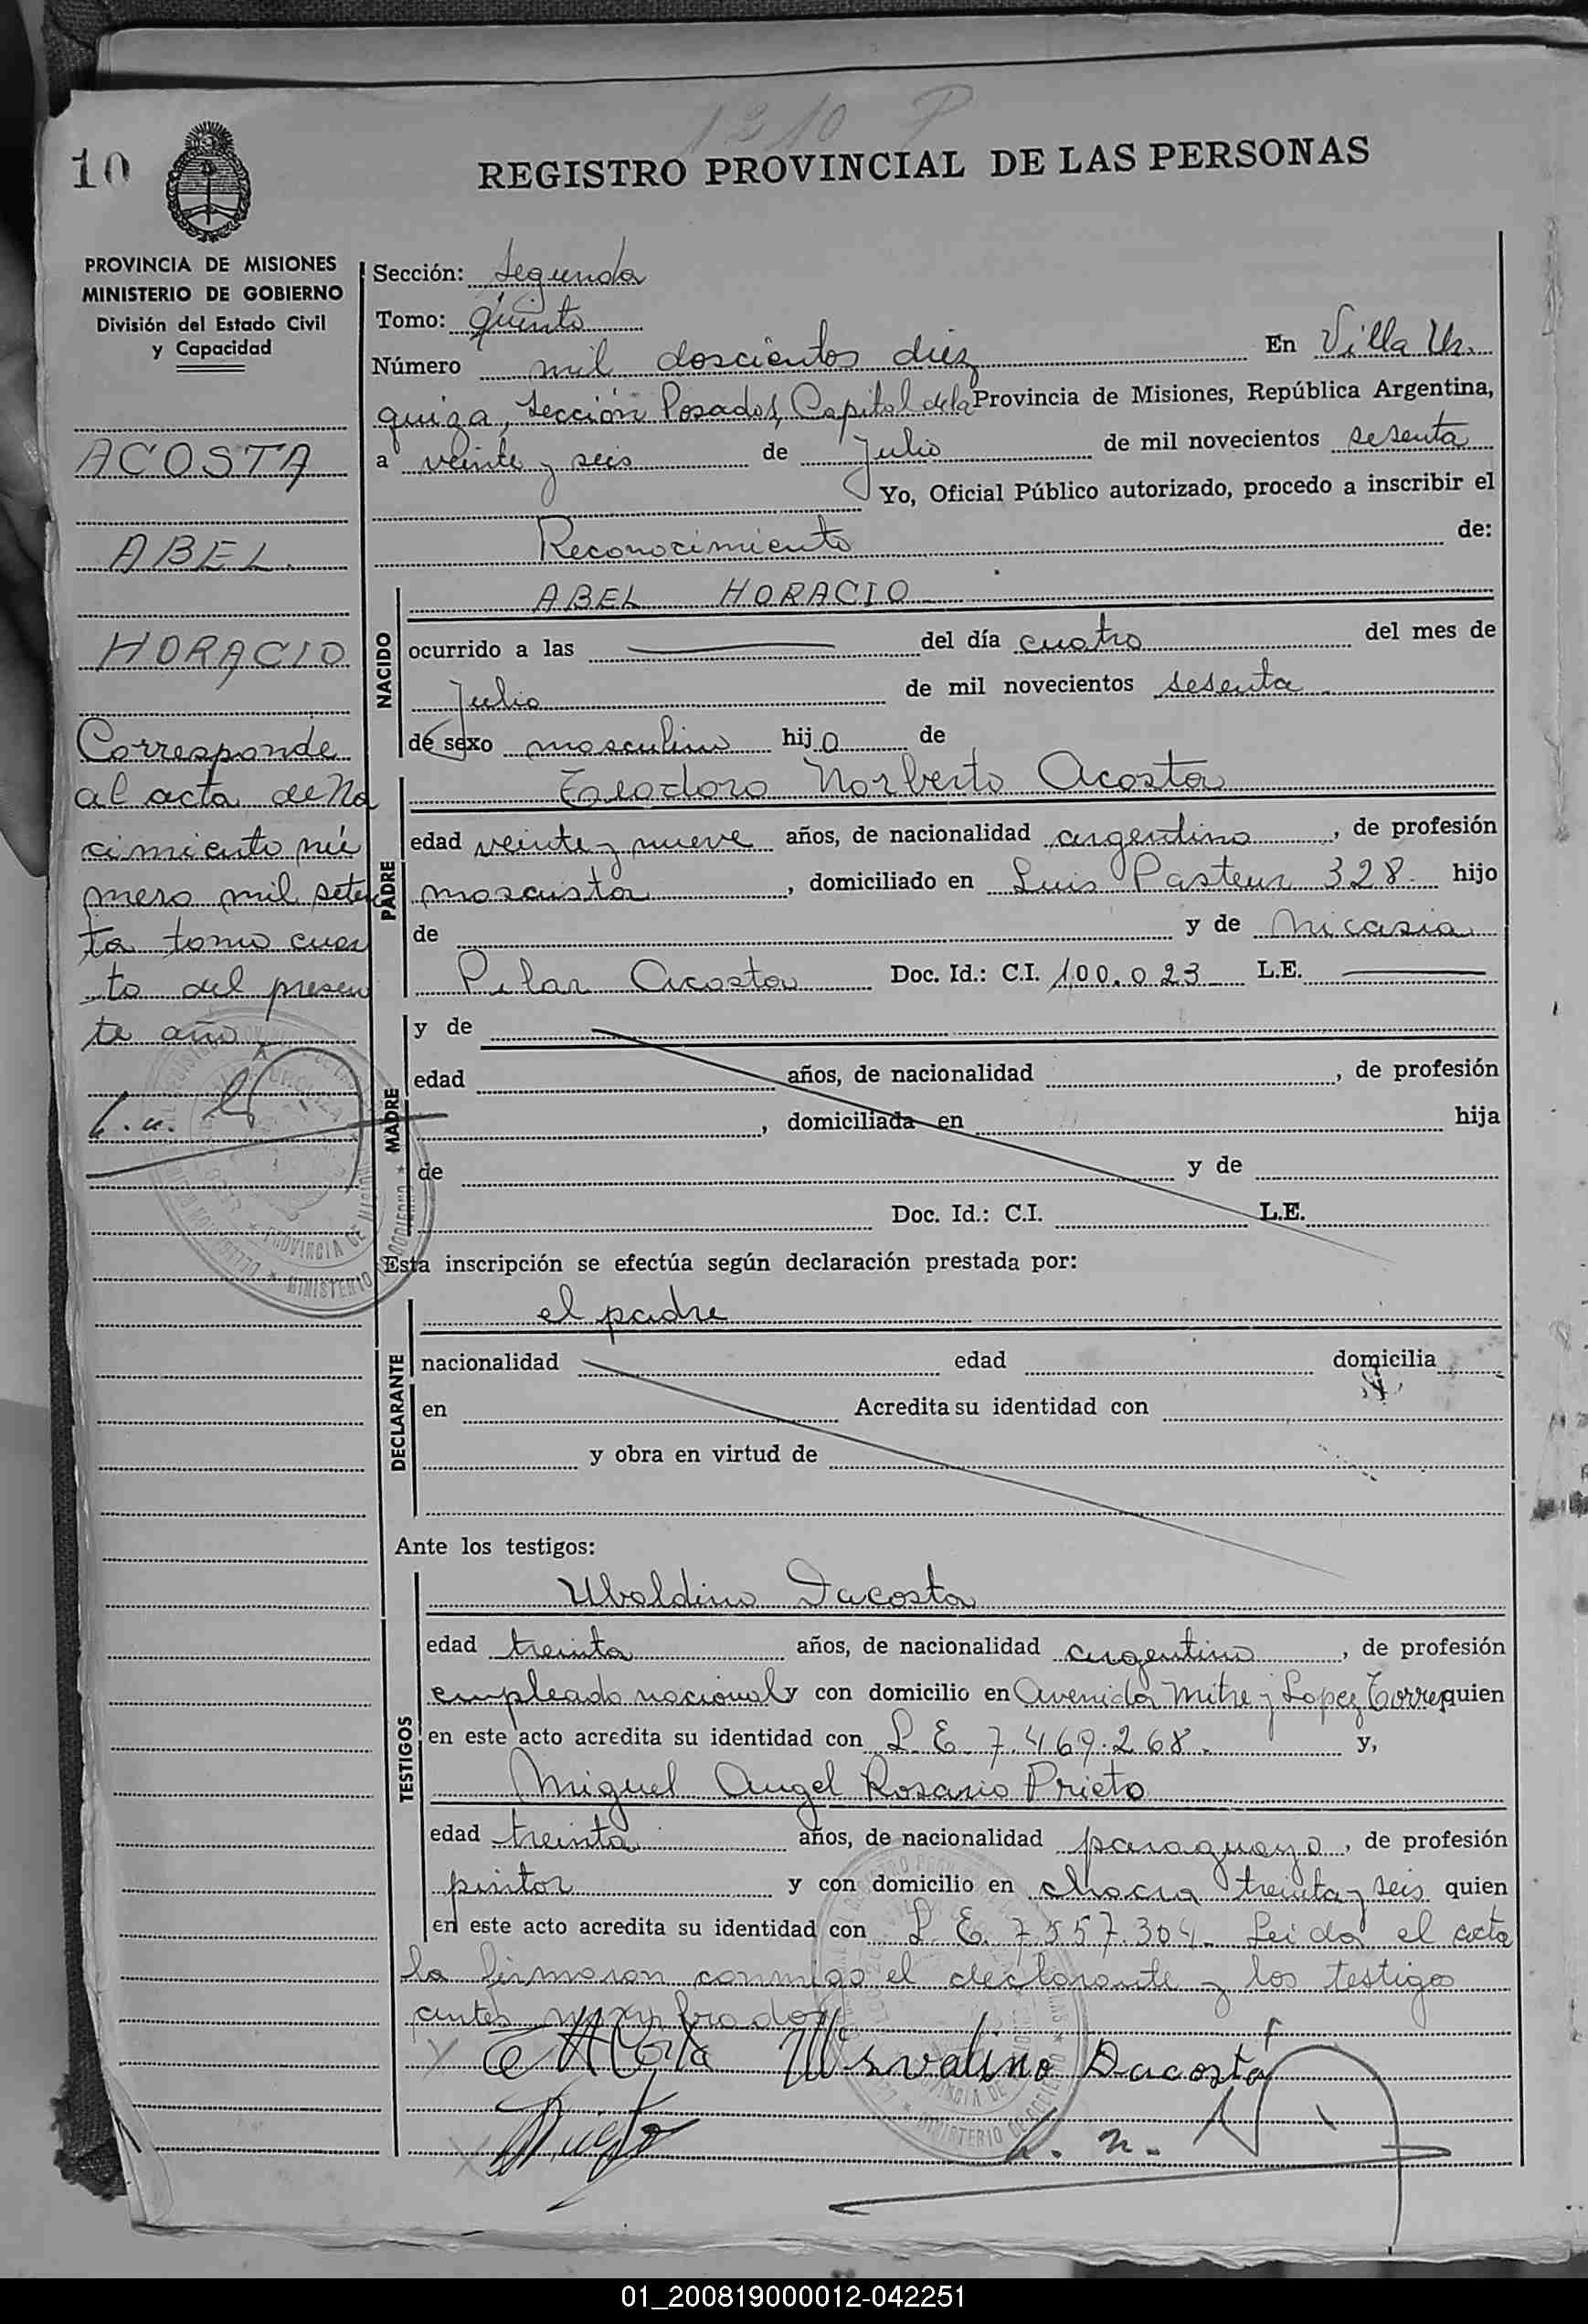 1210 P
10
REGISTRO PROVINCIAL DE LAS PERSONAS
PROVINCIA DE MISIONES
MINISTERIO DE GOBIERNO
División del Estado Civil
y Capacidad
ACOSTA
ABEL
HORACIO
Corresponde
al acta de Na
cimiento nú
mero mil seten
ta tomo cuar
to del presen
te año
Sección: Segunda
Tomo: quinto
Número mil doscientos diez En Villa Ur.
quiza, Sección Posadas, Capital de la Provincia de Misiones, República Argentina,
a veinte y seis de Julio de mil novecientos sesenta
Yo, Oficial Público autorizado, procedo a inscribir el
Reconocimiento de:
NACIDO
ABEL HORACIO
ocurrido a las del día cuatro del mes de
Julio de mil novecientos sesenta
de sexo masculino hijo de
PADRE
Teodoro Norberto Acosta
edad veinte y nueve años, de nacionalidad argentino, de profesión
mozaista, domiciliado en Luis Pasteur 328. hijo
de y de Nicasia
Pilar Acosta Doc. Id.: C.I. 100.023 L.E.
MADRE
y de
edad años, de nacionalidad , de profesión
, domiciliada en hija
de y de
Doc. Id.: C.I. L.E.
Esta inscripción se efectúa según declaración prestada por:
DECLARANTE
el padre
nacionalidad edad domicilia
en Acredita su identidad con
y obra en virtud de
Ante los testigos:
TESTIGOS
Ubaldino Dacosta
edad treinta años, de nacionalidad argentino, de profesión
empleado nacional y con domicilio en Avenida Mitre y Lopez Torres quien
en este acto acredita su identidad con L.E. 7.469.268. y,
Miguel Angel Rosario Prieto
edad treinta años, de nacionalidad paraguayo, de profesión
pintor y con domicilio en chacra treinta y seis quien
en este acto acredita su identidad con L.E. 7.557.304. Leida el acta
la firmaron conmigo el declarante y los testigos
antes
Dacosta
Prieto
PROVINCIA DE MISIONES
MINISTERIO DE GOBIERNO
01_200819000012-042251